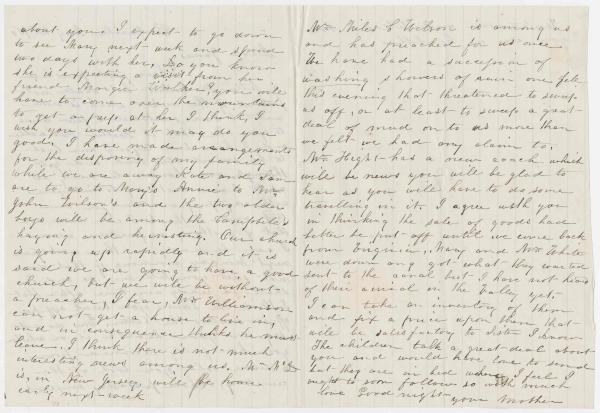 about you. I expect to go down
to see Mary next week and spend
two days with her, Do you know
she is expecting a visit from her
friend Margie Walker, you will
have to come over the mountains
to get a peep at her I think, I
wish you would it may do you
good, I have made arrangements
for the disposing of my family
while we are away Kate and Sam
are to go to Mary's Annie to Mr
John Wilson's and the two older
boys will be among the Campbells
haying and harvesting. Our church
is going up rapidly and it is
said we are going to have a good
church, but we will be without
a preacher, I fear, Mr Williamson
can not get a house to live in,
and in consequence thinks he must
leave. I think there is not much
interesting news among us. Mr
is in New Jersey, will be home
early next week
Mr Miles C Wilson is among us
and has preached for us once
We have had a succession of
washing showers of rain one fell
this evening that threatened to sweep
us off, or at least to sweep a great
deal of mud on to us more than
we felt we had any claim to,
Mr Hight has a new coach which
will be news you will be glad to
hear as you will have to do some
travelling in it. I agree with you
in thinking the sale of goods had
better be put off until we come back
from Virginia, Mary and Mr White
were down and got what they wanted
sent to the canal but I have not heard
of their arrival in the Valley yet,
I can take an inventory of them
and fix a price upon them that
will be satisfactory to Sister I know
The children talk a great deal about
you and would have love to send
but they are in bed where I feel I
ought to soon follow so with much
love Good night your Mother